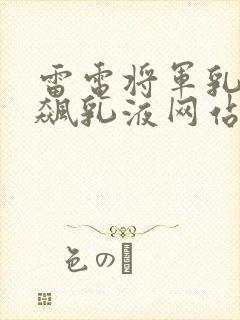 雷电将军乳
飙乳液网站
色の